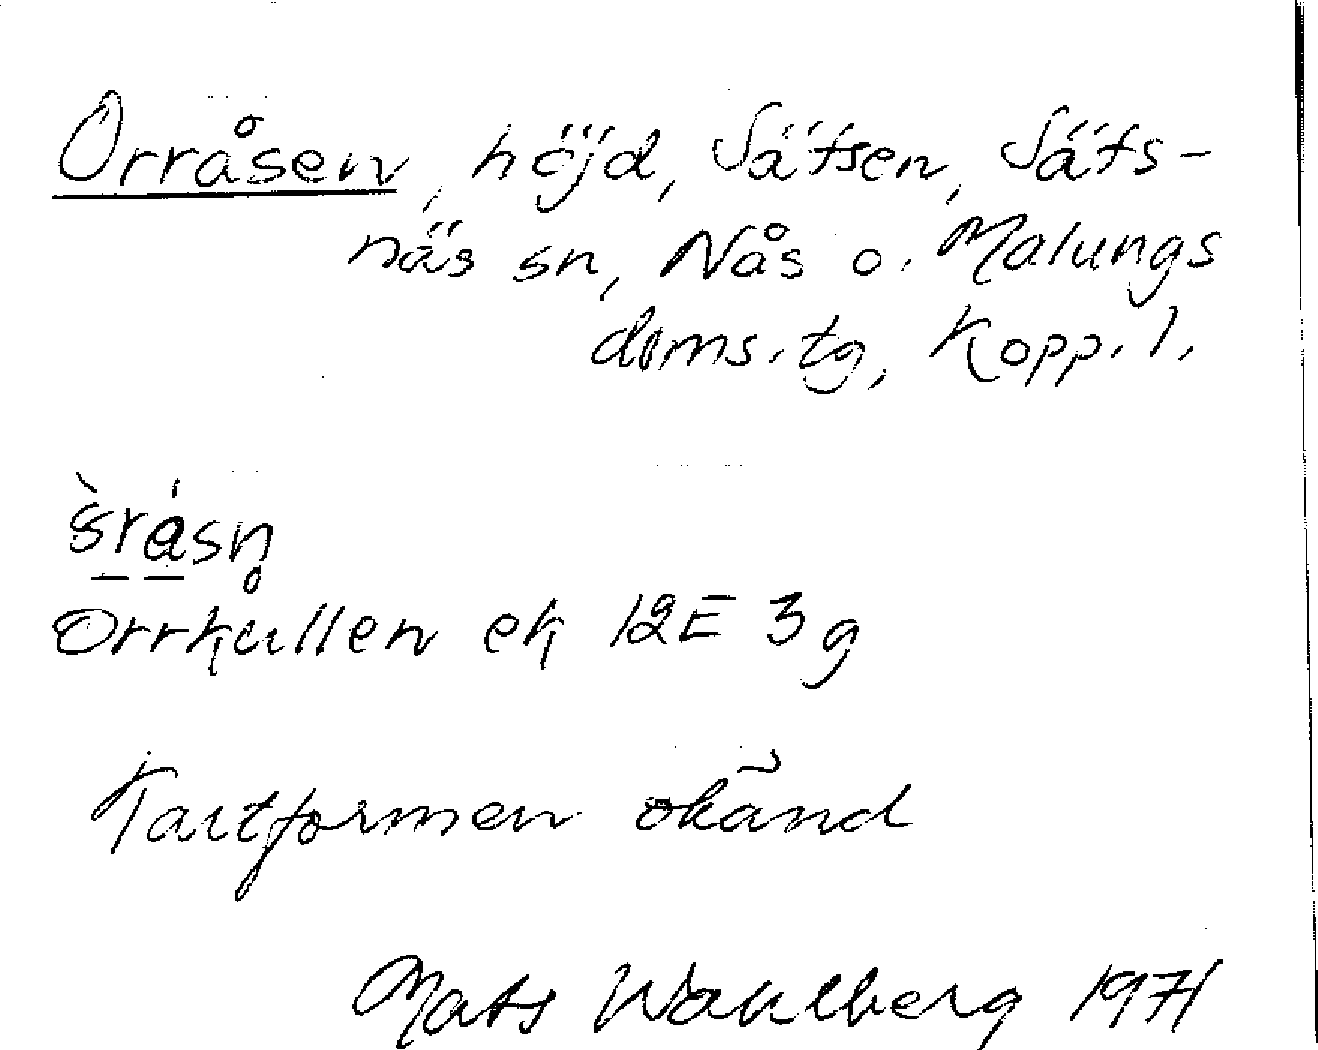 Orråsen, höjd, Sätsen, Säts-
näs sn, Nås o. Malungs
doms. tg, Kopp. l.
Orrkullen ek 12E 3g
Kartformen okänd
Mats Wahlberg 1971